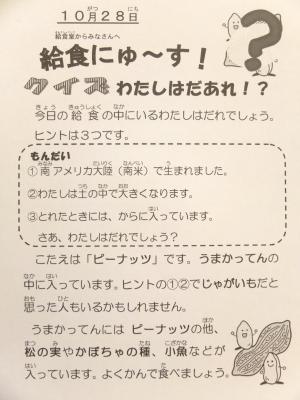 １０月２８日
給食室からみなさんへ
給食にゅ～す！
クイズ わたしはだあれ！？
今日の給食の中にいるわたしはだれでしょう。
ヒントは３つです。
もんだい
①南アメリカ大陸（南米）で生まれました。
②わたしは土の中で大きくなります。
③とれたときには、からに入っています。
さあ、わたしはだれでしょう？
こたえは「ピーナッツ」です。うまかってんの
中に入っています。ヒントの①②でじゃがいもだと
思った人もいるかもしれません。
うまかってんには ピーナッツの他、
松の実やかぼちゃの種、小魚などが
入っています。よくかんで食べましょう。